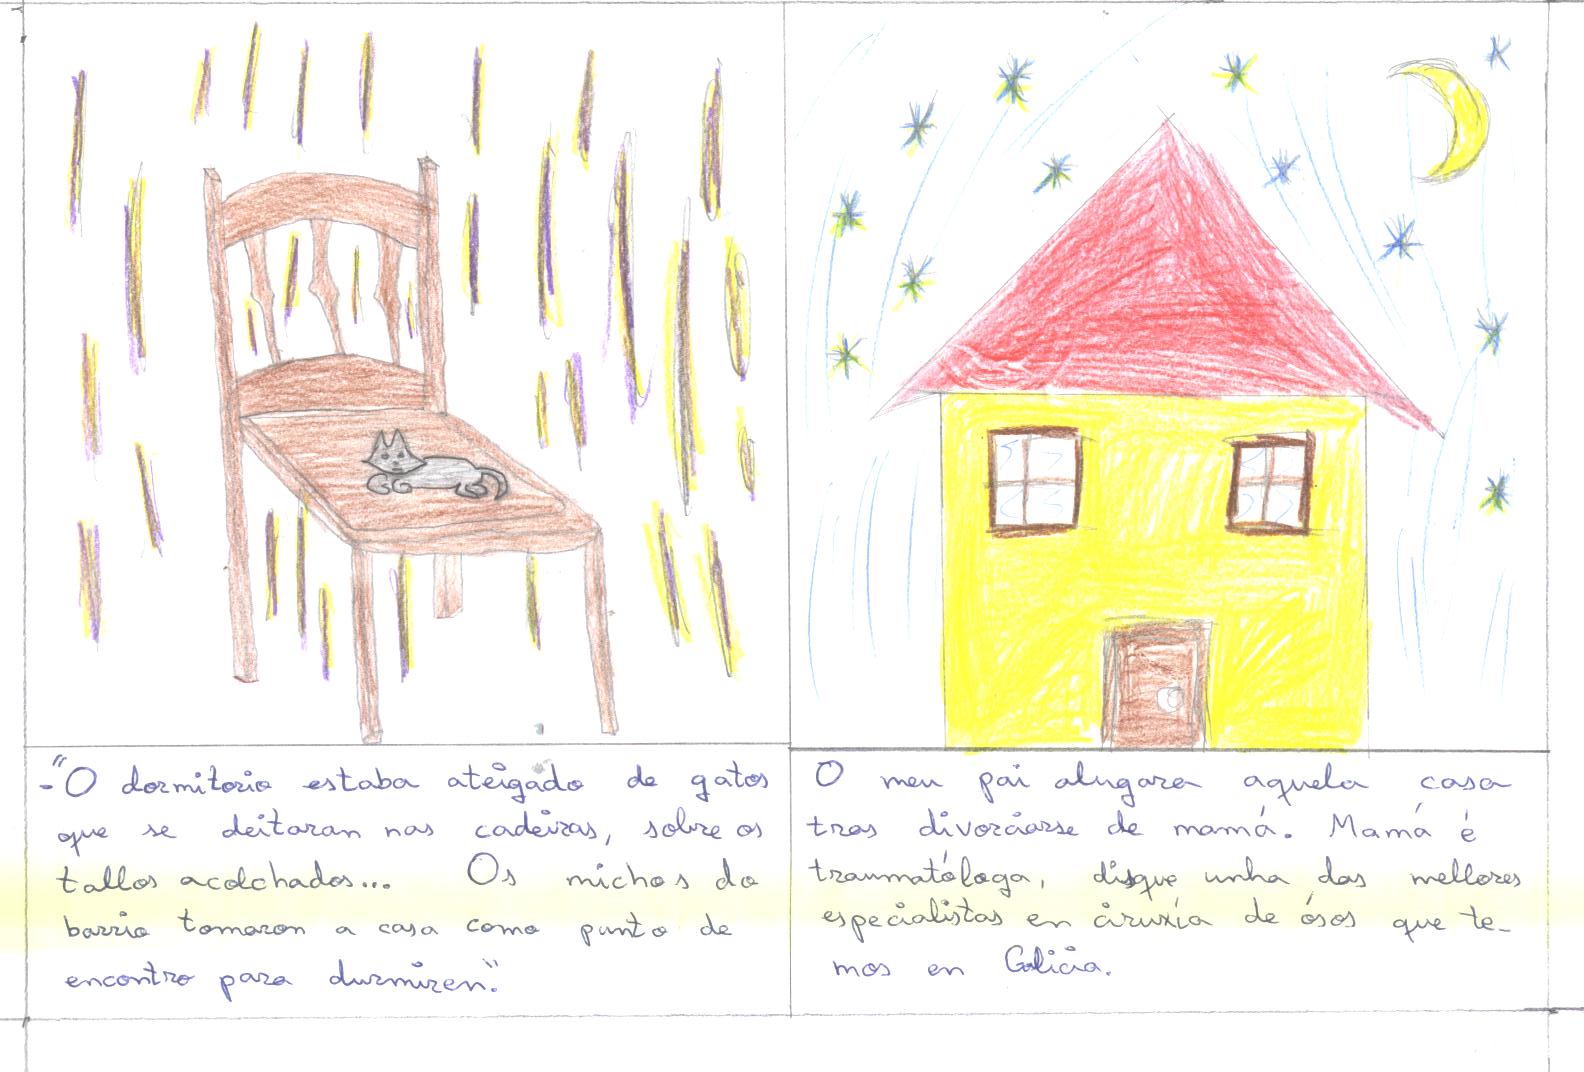 -"O dormitorio estaba ateigado de gatos
que se deitaran nas cadeiras, sobre os
tallos acolchados... Os michos do
barrio tomaron a casa como punto de
encontro para durmiren."
O meu pai alugara aquela casa
tras divorciarse de mamá. Mamá é
traumatóloga, disque unha das mellores
especialistas en ciruxía de ósos que te-
mos en Galicia.